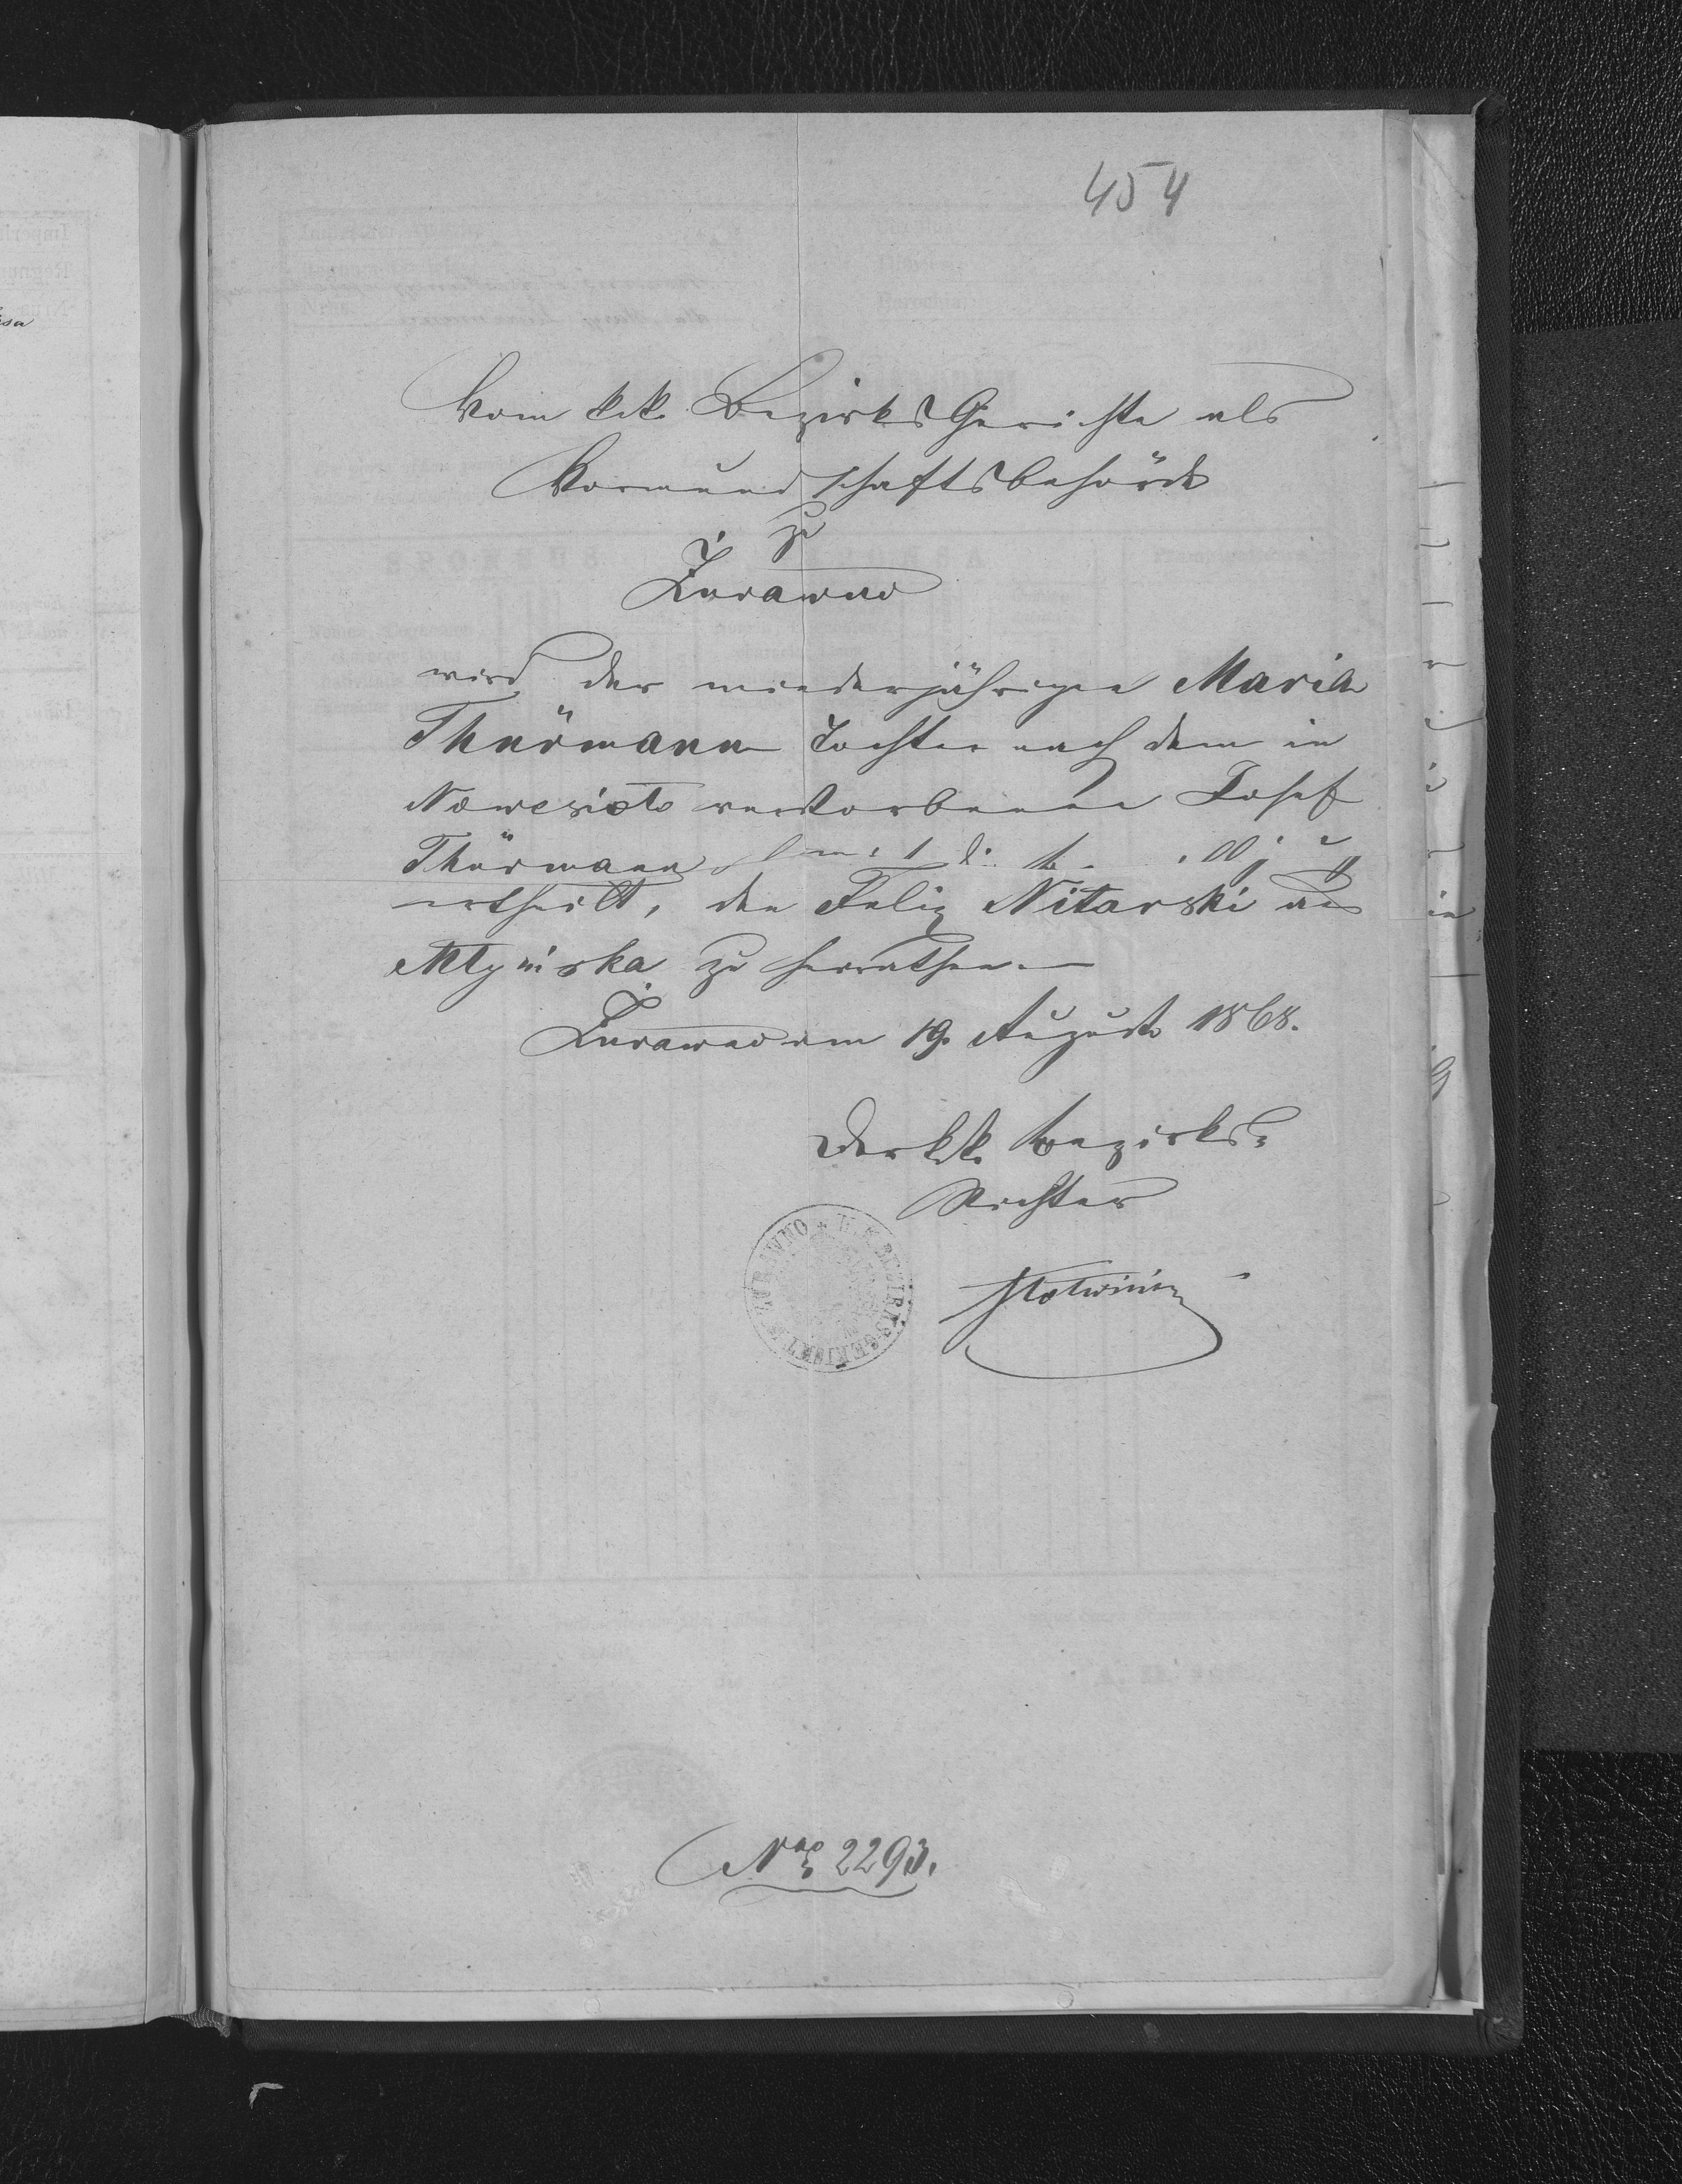 454
Vom k.k. Bezirks Gerichte als
Vormundschaftsbehörde
zu
Żurawno
wird der minderjährigen Maria
Thürmann Tochter nach dem in
verstorbenen Josef
Thürmann
ertheilt, den Felix Nitarski aus
Młyniska zu heirathen.
Żurawno am 19. August 1868.
Der k.k. Bezirks=
Richter
K. K. BEZIRKSGERICHT ZURAWNO
Nro 2293.